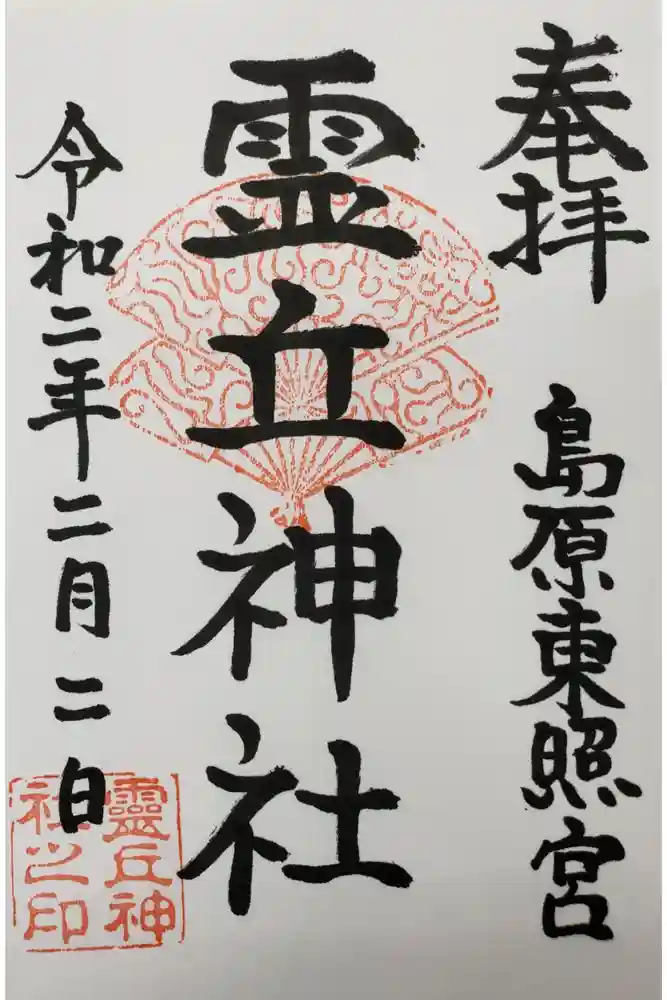 奉拝
島原東照宮
霊丘神社
令和二年二月二日
靈丘神
社之印